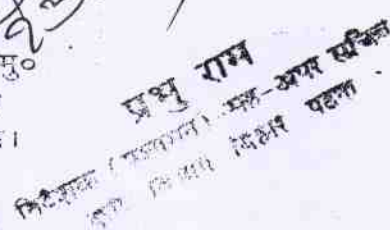 मु०
प्रभु राम
निदेशक (प्रशासन)-सह-अपर सचिव
कृषि विभाग बिहार पटना